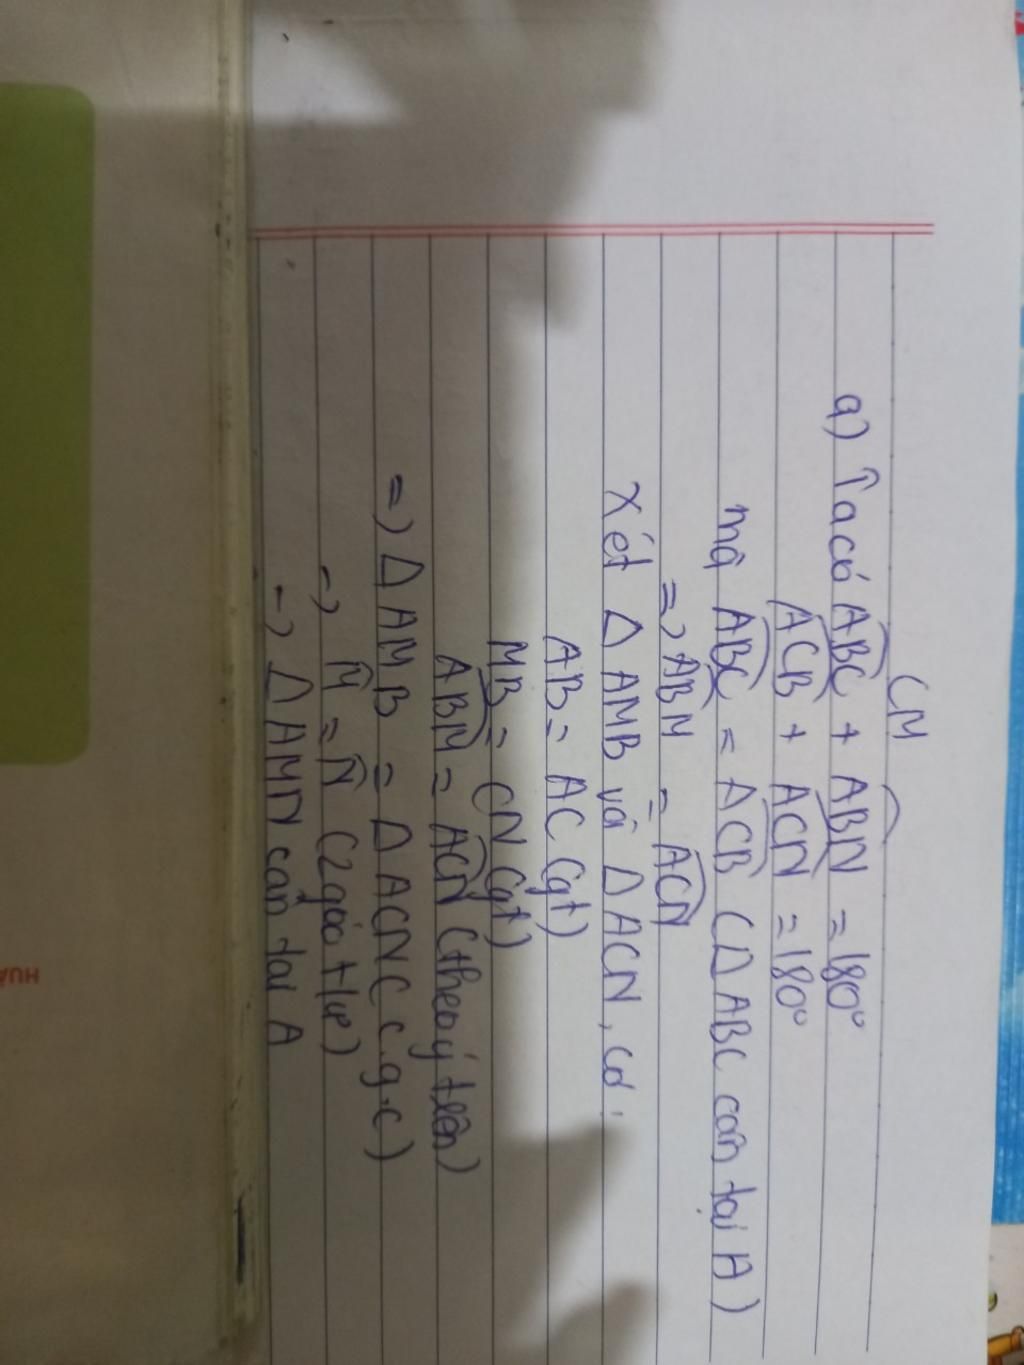 CM
a) Ta có ABC + ABN = 180°
ACB + ACN = 180°
mà ABC = ACB (Δ ABC cân tại A)
=> ABM = ACN
Xét Δ AMB và Δ ACN, có:
AB = AC (gt)
MB = CN (gt)
ABM = ACN (theo ý trên)
=> Δ AMB = Δ ACN C c.g.c)
=> M̂ = N̂ (2 góc tứ)
=> Δ AMN cân tại A
HUÂ